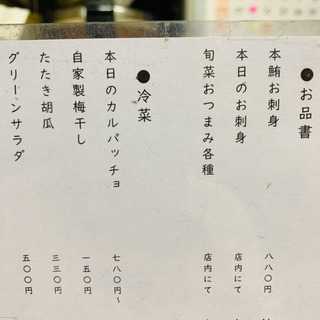 ●お品書
本鮪お刺身 八八〇円
本日のお刺身 店内にて
旬菜おつまみ各種 店内にて
●冷菜
本日のカルパッチョ 七八〇円〜
自家製梅干し 一五〇円
たたき胡瓜 三三〇円
グリーンサラダ 五〇〇円